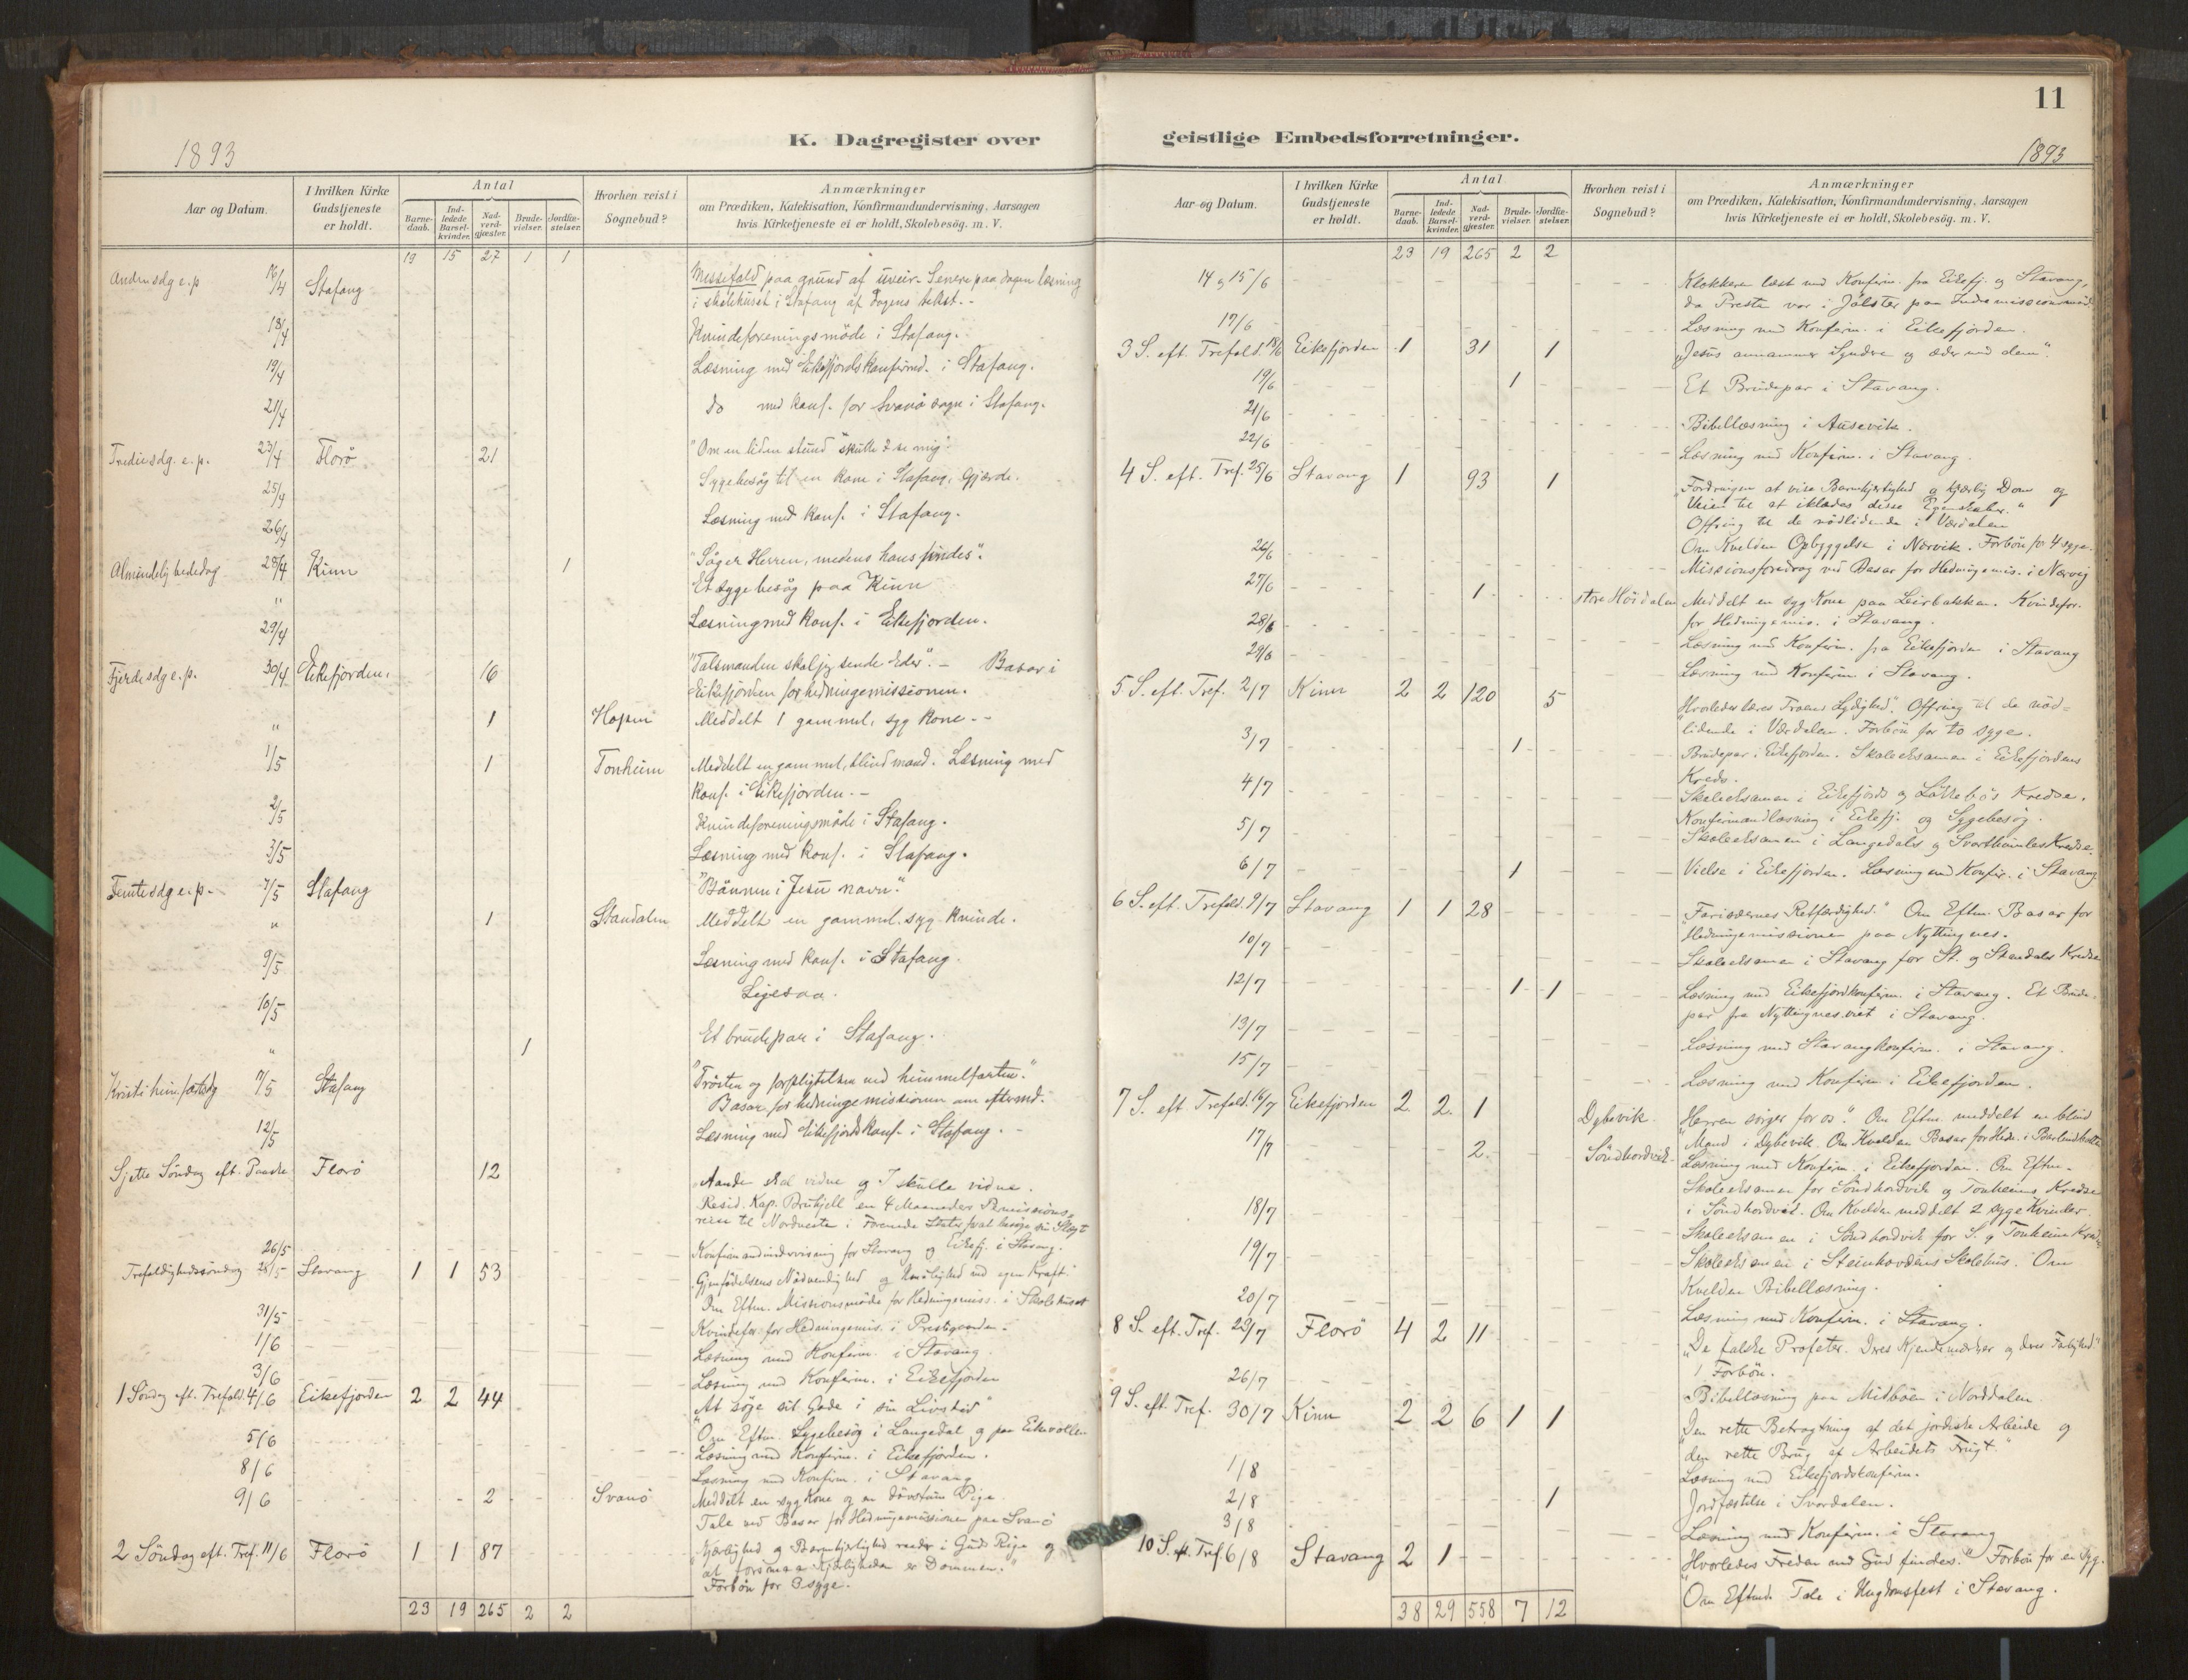 11
K. Dagregister over geistlige Embedsforretninger.
1893
1893
Aar og Datum.
I hvilken Kirke Gudstjeneste er holdt.
Antal
Barne-daab.
Ind-ledede Barsel-kvinder.
Nad-verd-gjæster.
Brude-vielser.
Jordfæ-stelser.
Hvorhen reist i Sognebud?
Anmærkninger
om Prædiken, Katekisation, Konfirmandundervisning, Aarsagen
hvis Kirketjeneste ei er holdt, Skolebesög. m. V.
19 15 27 1 1
Anden sdg e. p. 16/4 Stafang Messefald paa grund af uveir. Senere paa dagen læsning
i skolehuset i Stafang af dagens tekst. -
18/4 Kvindeforeningsmöde i Stafang.
19/4 Læsning med Eikefjords konfirmd. i Stafang.
21/4 do med konf. for Svanö sogn i Stafang.
Tredie sdg. e. p. 23/4 Florö 21 "Om en liden stund skulle I se mig".
25/4 Sygebesög til en kone i Stafang, Gjærde.
26/4 Læsning med konf. i Stafang.
Almindelig bededag 28/4 Kinn 1 "Söger Herren, medens han findes".
" Et sygebesög paa Kinn
29/4 Læsning med konf. i Eikefjorden.
Fjerde sdg e. p. 30/4 Eikefjorden. 16 "Talsmanden skal jeg sende Eder". - Basar i
Eikefjorden for hedningemissionen.
" 1 Hopen Meddelt 1 gammel, syg kone. -
1/5 1 Tonheim Meddelt en gammel, blind mand. Læsning med
konf. i Eikefjorden. -
2/5 Kvindeforeningsmöde i Stafang.
3/5 Læsning med konf. i Stafang.
Femte sdg e. p. 7/5 Stafang "Bönnen i Jesu navn".
" 1 Standalen Meddelt en gammel. syg kvinde.
9/5 Læsning med konf. i Stafang.
10/5 Ligesaa.
" 1 Et brudepar i Stafang.
Kristi himfartsdg 11/5 Stafang "Trösten og forpligtelsen ved himmelfarten."
Basar for hedningemissionen om eftermd.
12/5 Læsning med Eikefjords konf. i Stafang. -
Sjette Söndag eft. Paaske Florö 12 "Aanden skal vidne og I skulle vidne.
Resid. Kap. en 4 Maaneders Permissions-
reise til Nordvesten i Forenede Stater for at besöge sin Slegt
26/5 Konfirmandundervisning for Stavang og Eikefj. i Stavang.
Trefoldighedssöndag 28/5 Stavang 1 1 53 "Gjenfödelsens Nödvendighed og Umulighed ved egen Kraft."
Om Eftm. Missionsmöde for Hedningemiss. i Skolehuset
31/5 Kvindefor. for Hedningemis. i Prestegaarden.
1/6 Læsning med Konfirm. i Stavang.
3/6 Læsning med Konfirm. i Eikefjorden
1 Söndag eft. Trefold. 4/6 Eikefjorden 2 2 44 "At söge sit Gode i sin Livstid"
Om Eftm. Sygebesög i Langedal og paa Eikevollen
5/6 Læsning med Konfirm. i Eikefjorden.
8/6 Læsning med Konfirm. i Stavang
9/6 2 Svanö Meddelt en syg Kone og en dövstum Pige
Tale ved Basar for Hedningemissionen paa Svanö
2 Söndag eft. Tref. 11/6 Florö 1 1 87 "Kjærlighed og Barmhjertighed raader i Guds Rige og
at forsmaa Kjærligheden er Dommen."
Forbön for 3 syge.
23 19 265 2 2
Aar og Datum.
I hvilken Kirke Gudstjeneste er holdt.
Antal
Barne-daab.
Ind-ledede Barsel-kvinder.
Nad-verd-gjæster.
Brude-vielser.
Jordfæ-stelser.
Hvorhen reist i Sognebud?
Anmærkninger
om Prædiken, Katekisation, Konfirmandundervisning, Aarsagen
hvis Kirketjeneste ei er holdt, Skolebesög. m. V.
23 19 265 2 2
14 og 15/6 Klokkeren læst med Konfirm. fra Eikefj. og Stavang,
da Presten var i Jölster paa Indremissionsmöde
17/6 Læsning med Konfirm. i Eikefjorden.
3 S. eft. Trefold. 18/6 Eikefjorden 1 31 1 "Jesus annammer Syndere og æder med dem".
19/6 1 Et Brudepar i Stavang.
21/6 Bibellæsning i Ausevik.
22/6 Læsning med Konfirm. i Stavang.
4 S. eft. Tref. 25/6 Stavang 1 93 1 "Fordringen at vise Barmhjertighed og kjærlig Dom og
Veien til at iklædes disse Egenskaber."
Offring til de nödlidende i Værdalen
Om Kvelden Opbyggelse i Nærvik. Forbön for 4 syge.
26/6 Missionsforedrag ved Basar for Hedningemis. i Nærvig
27/6 1 store Höidalen Meddelt en syg Kone paa Leirbakken. Kvindefor.
for Hedningemis. i Stavang.
28/6 Læsning med Konfirm. fra Eikefjorden i Stavang
29/6 Læsning med Konfirm. i Stavang.
5 S. eft. Tref. 2/7 Kinn 2 2 120 5 "Hvorledes læres Troens Lydighed". Offring til de nöd-
lidende i Værdalen. Forbön for to syge.
3/7 1 Brudepar i Eikefjorden. Skoleeksamen i Eikefjordens
Kreds.
4/7 Skoleeksamen i Eikefjords og Lökkebös Kredse.
Konfirmandlæsning i Eikefj. og Sygebesög.
5/7 Skoleeksamen i Langedals og Kredse.
6/7 1 Vielse i Eikefjorden. Læsning med Konfir. i Stavang
6 S. eft. Trefold. 9/7 Stavang 1 1 28 "Farisæernes Retfærdighed." Om Eftm. Basar for
Hedningemissionen paa Nyttingnes.
10/7 Skoleeksamen i Stavang for St. og Standals Kredse
12/7 1 1 Læsning med Eikefjordkonfirm. i Stavang. Et Brude-
par fra Nyttingnes viet i Stavang.
13/7 Læsning med Stavangkonfirm. i Stavang.
15/7 Læsning med Konfirm i Eikefjorden.
7 S. eft Trefold. 16/7 Eikefjorden 2 2 1 Dybevik "Herren sörger for os". Om Eftm. meddelt en blind
Mand i Dybevik. Om Kvelden Basar for Hedn. i
17/7 2 Söndhordvik Læsning med Konfirm. i Eikefjorden. Om Eftm.
Skoleeksamen for Söndhordvik og Tonheims Kredse
i Söndhordvik. Om Kvelden meddelt 2 syge Kvinder.
18/7 Skoleeksamen i Söndhordvik for S. og Tonheim Kredse
19/7 Skoleeksamen i Steinhovdens Skolehus. Om
Kvelden Bibellæsning.
20/7 Læsning med Konfirm. i Stavang.
8 S. eft. Tref. 23/7 Florö 4 2 11 "De falske Profeter. Deres Kjendemærker og deres Farlighed."
1 Forbön.
26/7 Bibellæsning paa Midböen i Norddalen
9 S. eft. Tref. 30/7 Kinn 2 2 6 1 1 "Den rette Betragtning af det jordiske Arbeide og
den rette Brug af Arbeidets Frugt."
1/8 Læsning med Eikefjordskonfirm.
2/8 1 Jordfæstelse i Svordalen.
3/8 Læsning med Konfirm. i Stavang
10 S. e. Tref 6/8 Stavang 2 1 "Hvorledes Freden med Gud findes." Forbön for en syg.
Om Eftmd. Tale i Ungdomsfest i Stavang.
38 29 558 7 12